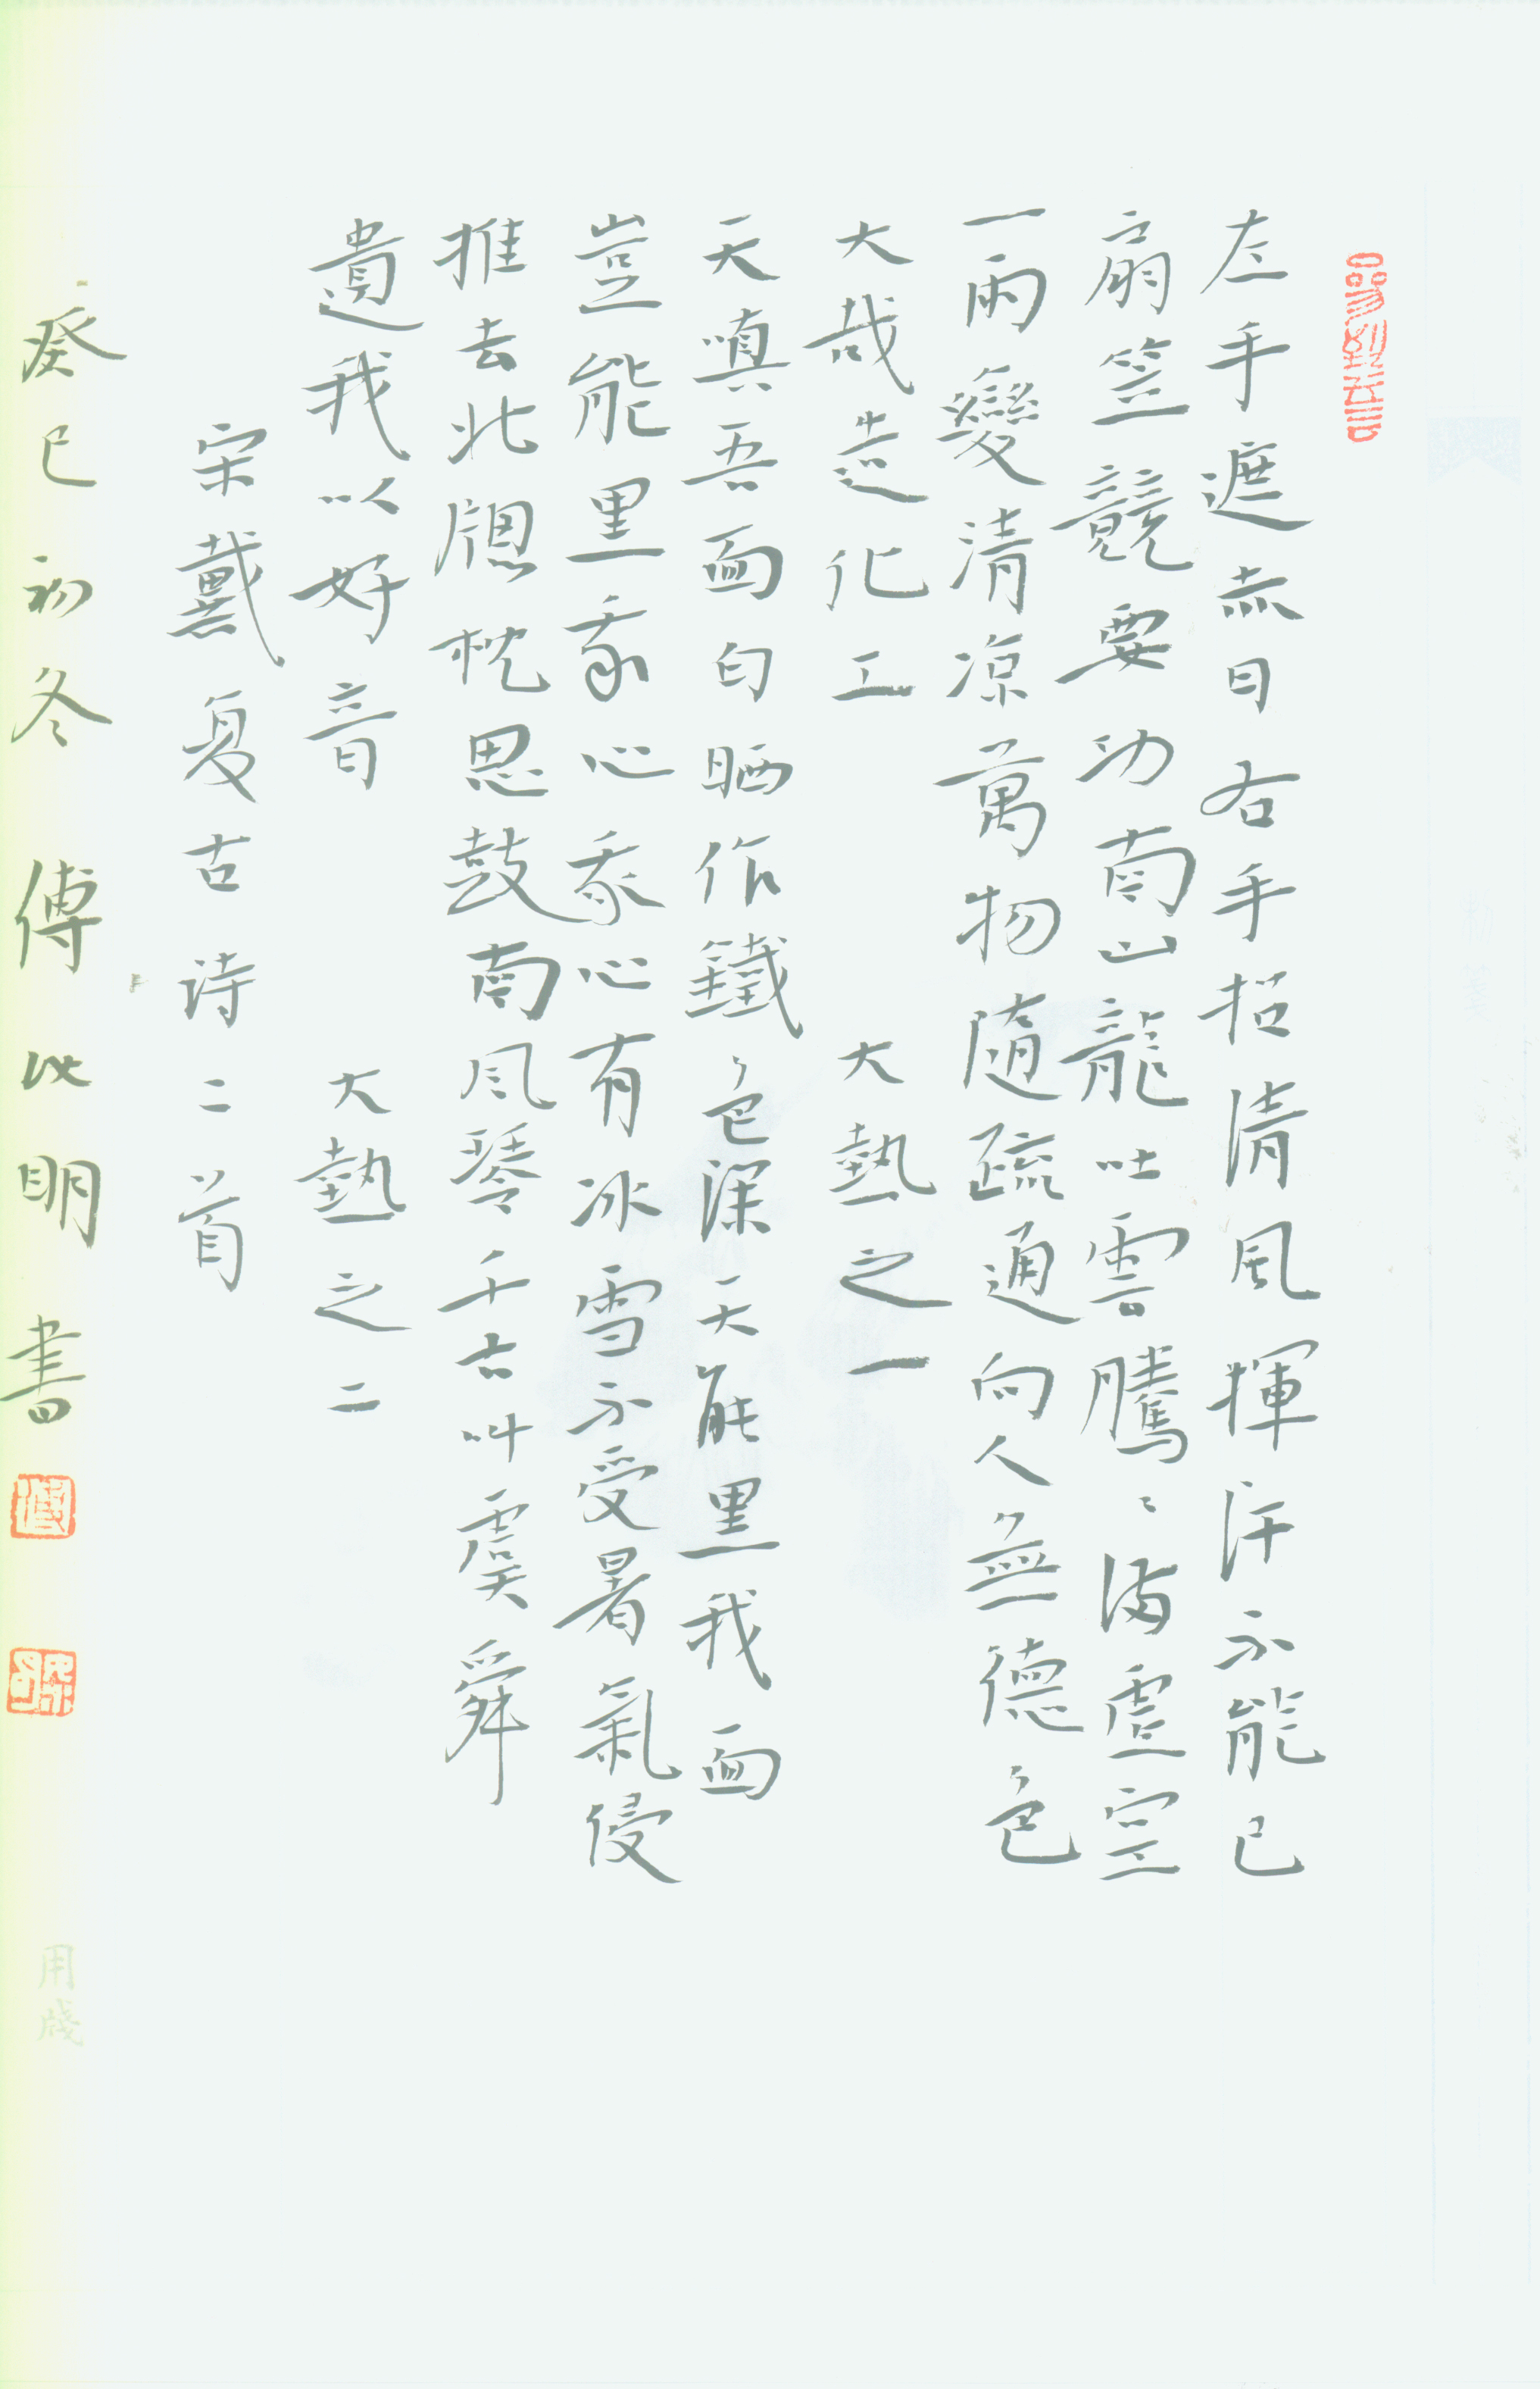 左手遮赤日右手招清風揮汗不能已
扇笠競要功南山龍吐雲騰〻滿虛空
一雨變清涼萬物隨疏通向人無德色
大哉造化工 大熱之一
天嗔吾面白晒作鐵〻色深天能黑我面
豈能黑我心我心有冰雪不受暑氣侵
推去北窻枕思鼓南风琴千古叫虞舜
遺我以好音 大熱之二
宋戴复古诗二首
癸巳初冬 傅以明書
用牋